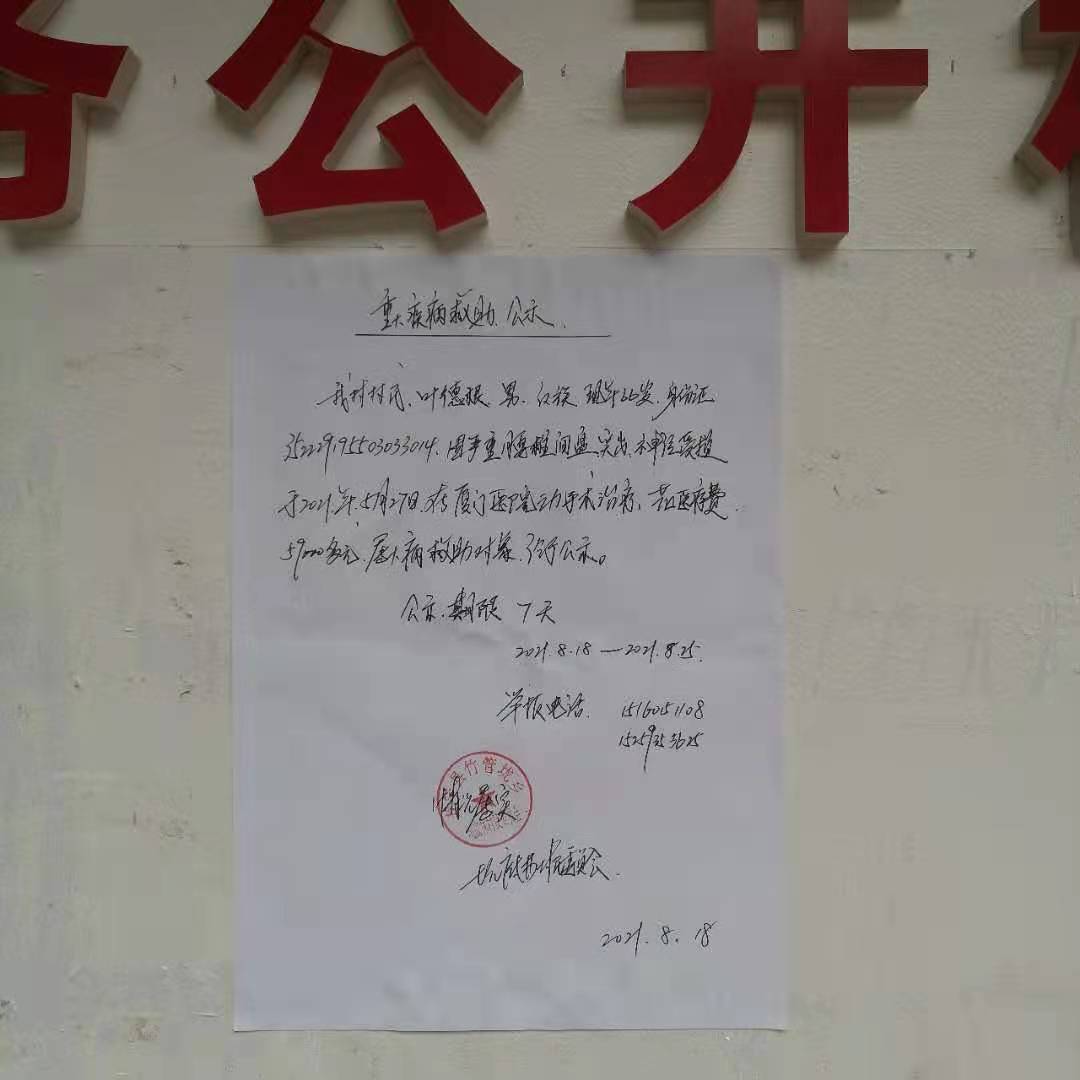 务公开栏
重大疾病救助公示.
我村村民、叶德根 男、汉族 现年66岁、身份证
352229195503033014、因严重腰椎间盘突出、神经受损
于2021年.5月27日.在厦门医院动手术治疗、花医疗费.
59000多元、属大病救助对象、予以公示。
公示.期限 7天
2021.8.18—2021.8.25.
举报电话. 15160151108
15259353625
县竹管垅乡
情况属实
村民委员会.
2021.8.18